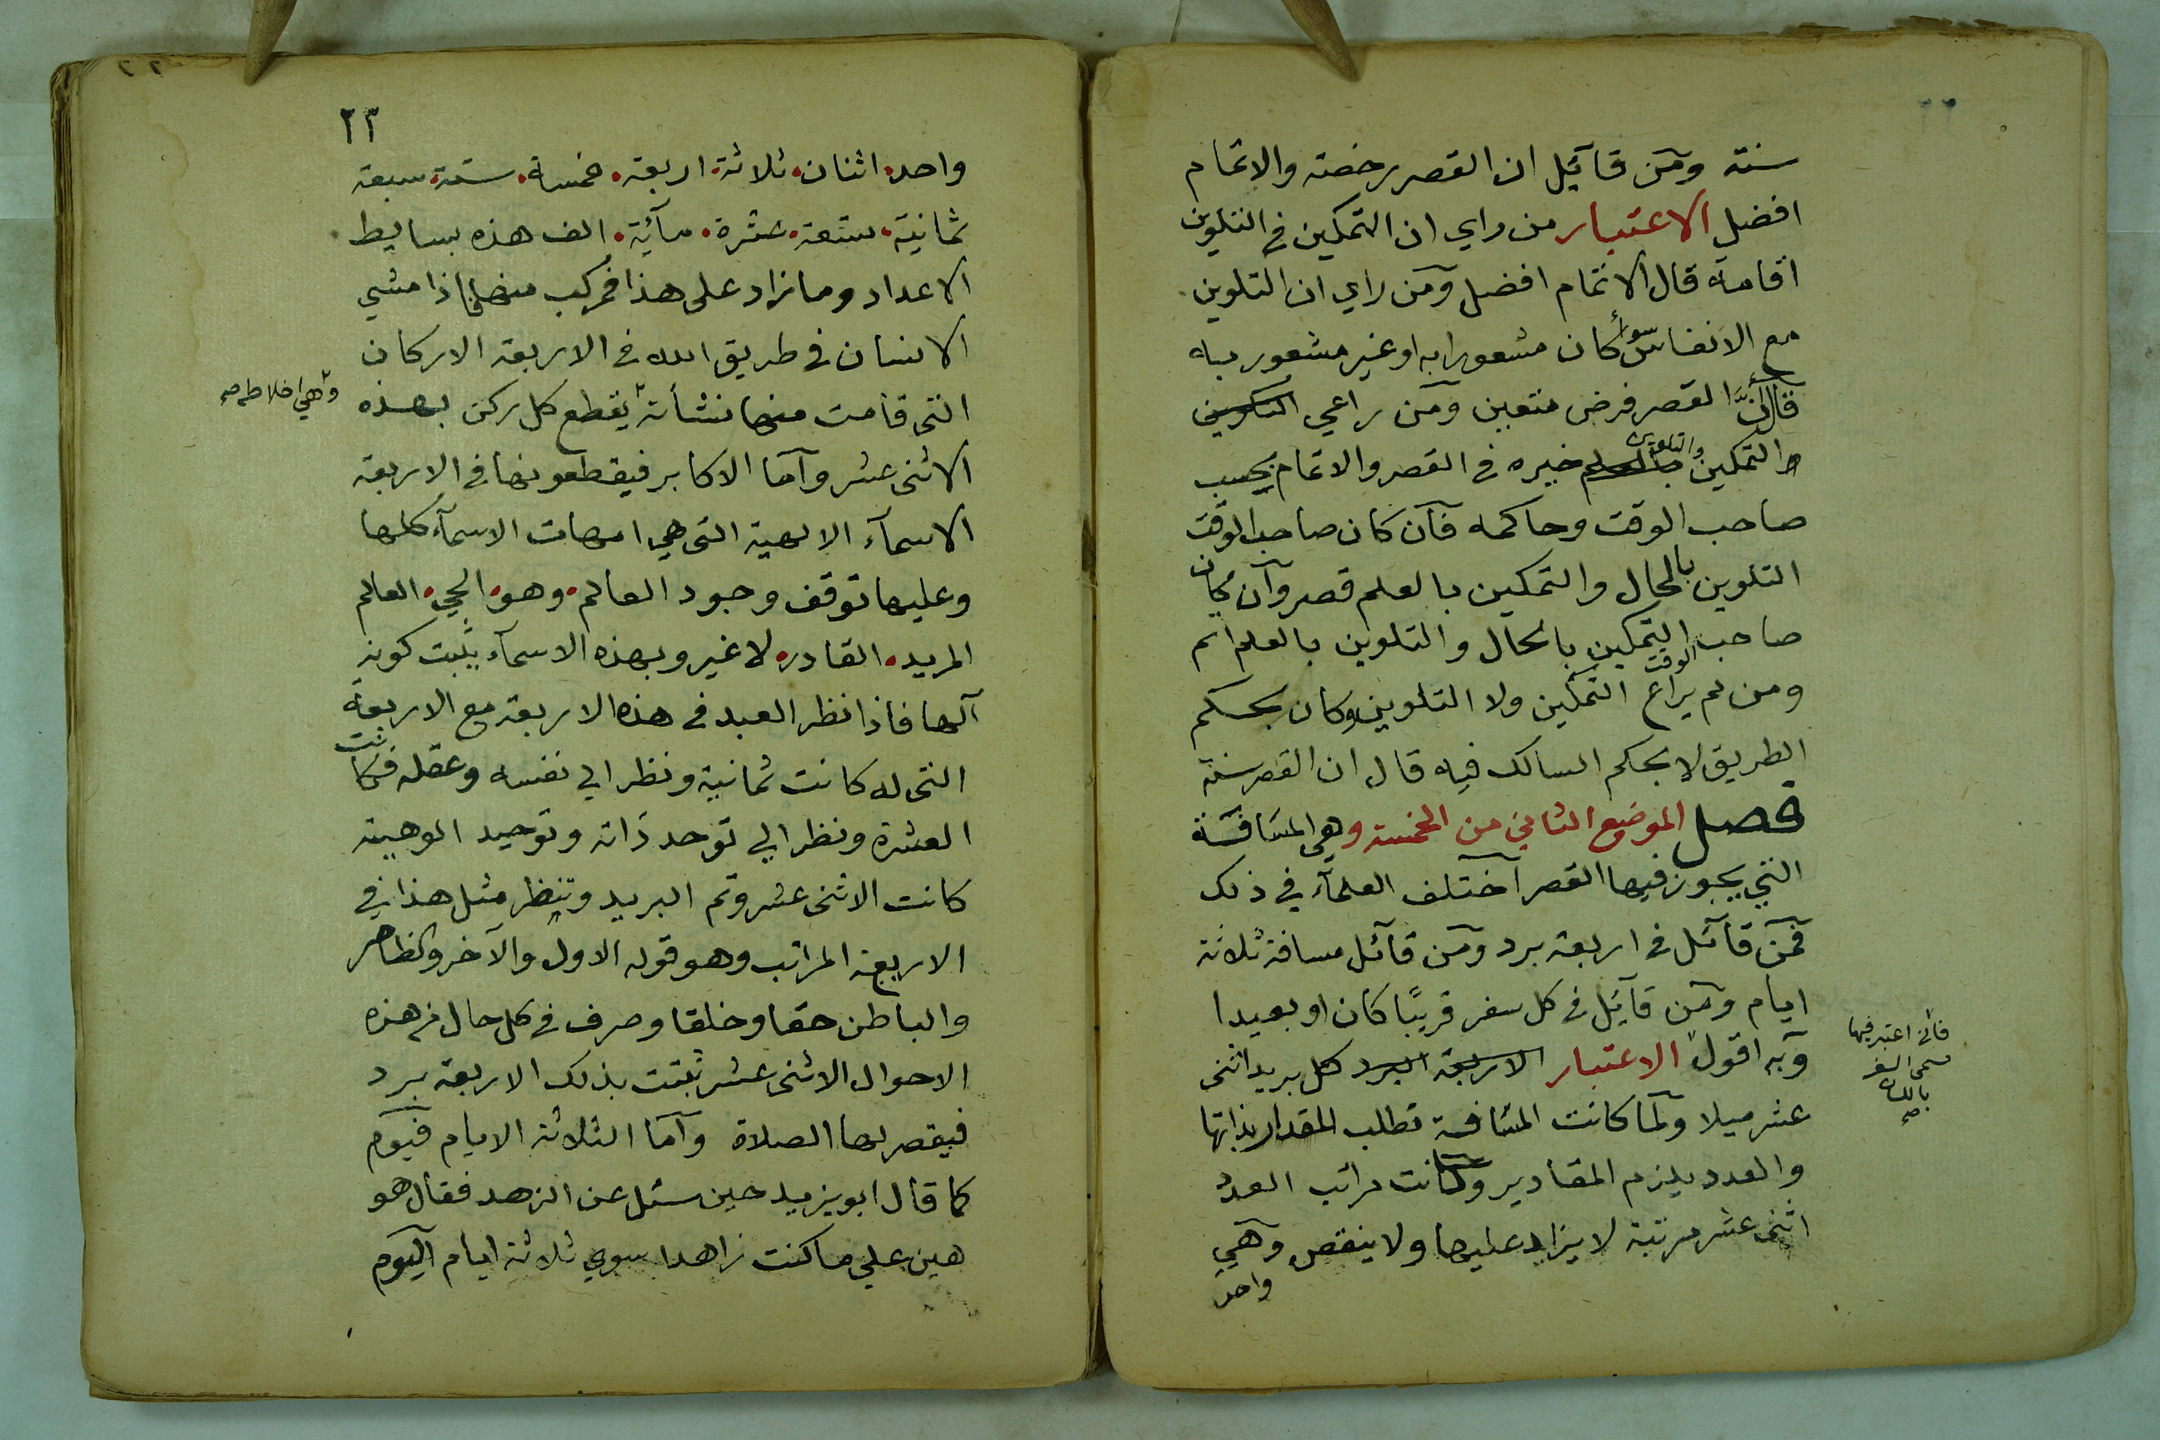 سنته ومن قائيل ان القصر رخصته والاتمام
افضل الاعتبار من راي ان التمكين في التلوين
اقامة قال الاتمام افضل ومن راي ان التلوين
مع الانفاس سوأ كان مشعورا به او غير مشعور به
قال انَّ القصر فرض متعين ومن راعي التكوين
التمكين والتلوين خيره في القصر والاتمام بحسب
صاحب الوقت وحاكمه فان كان صاحب الوقت
التلوين بالحال والتمكين بالعلم قصر وان كان
صاحب الوقت التمكين بالحال والتلوين بالعلم اتم
ومن لم يراع التمكين ولا التلوين وكان بحكم
الطريق لا بحكم السالك فيه قال ان القصر سنته
فصل الموضع الثاني من الخمسة وهي المسافة
التي يجوز فيها القصر اختلف العلمآء في ذلك
فمن قآئل في اربعة برد ومن قآئل مسافة ثلاثة
ايام ومن قآئل في كل سفر قريبًا كان او بعيدا
وبه اقول الاعتبار الاربعة البرد كل بريد اثنى
فاني اعتبر فيها
مسمى السفر
باللسان
صح
عشر ميلا ولما كانت المسافة تطلب المقدار بذاتها
والعدد يلزم المقادير وكانت مراتب العدد
اثنى عشر مرتبة لا يزاد عليها ولا ينقص وهي
واحد
٢٣
واحد اثنان ثلاثة اربعة خمسة ستة سبعة
ثمانية تسعة عشرة مآئة الف هذه بسايط
الاعداد وما زاد على هذا فمركب منها فاذا مشي
الانسان في طريق الله في الاربعة الاركان
التي قامت منها نشأته يقطع كل ركن بهذه
وهي اخلاطه صح
الاثنى عشر وآما الاكابر فيقطعونها في الاربعة
الاسمآء الالهية التي هي امهات الاسمآء كلها
وعليها توقف وجود العالم وهو الحي العالم
المريد القادر لا غير وبهذه الاسمآء يثبت كونه
آلها فاذا نظر العبد في هذه الاربعة مع الاربعة
التي له كانت ثمانية ونظر الي نفسه وعقله فكانت
العشرة ونظر الي توحد ذاته وتوحيد الوهيته
كانت الاثنى عشر وتم البريد وتنظر مثل هذا في
الاربعة المراتب وهو قوله الاول والآخر والظاهر
والباطن حقا وخلقا وصرف في كل حال من هذه
الاحوال الاثنى عشر ثبتت بذلك الاربعة برد
فيقصر لها الصلاة وآما الثلاثة الايام فيوم
كما قال ابو يزيد حين سئل عن الزهد فقال هو
هين علي ما كنت زاهدا سوي ثلاثة ايام اليوم